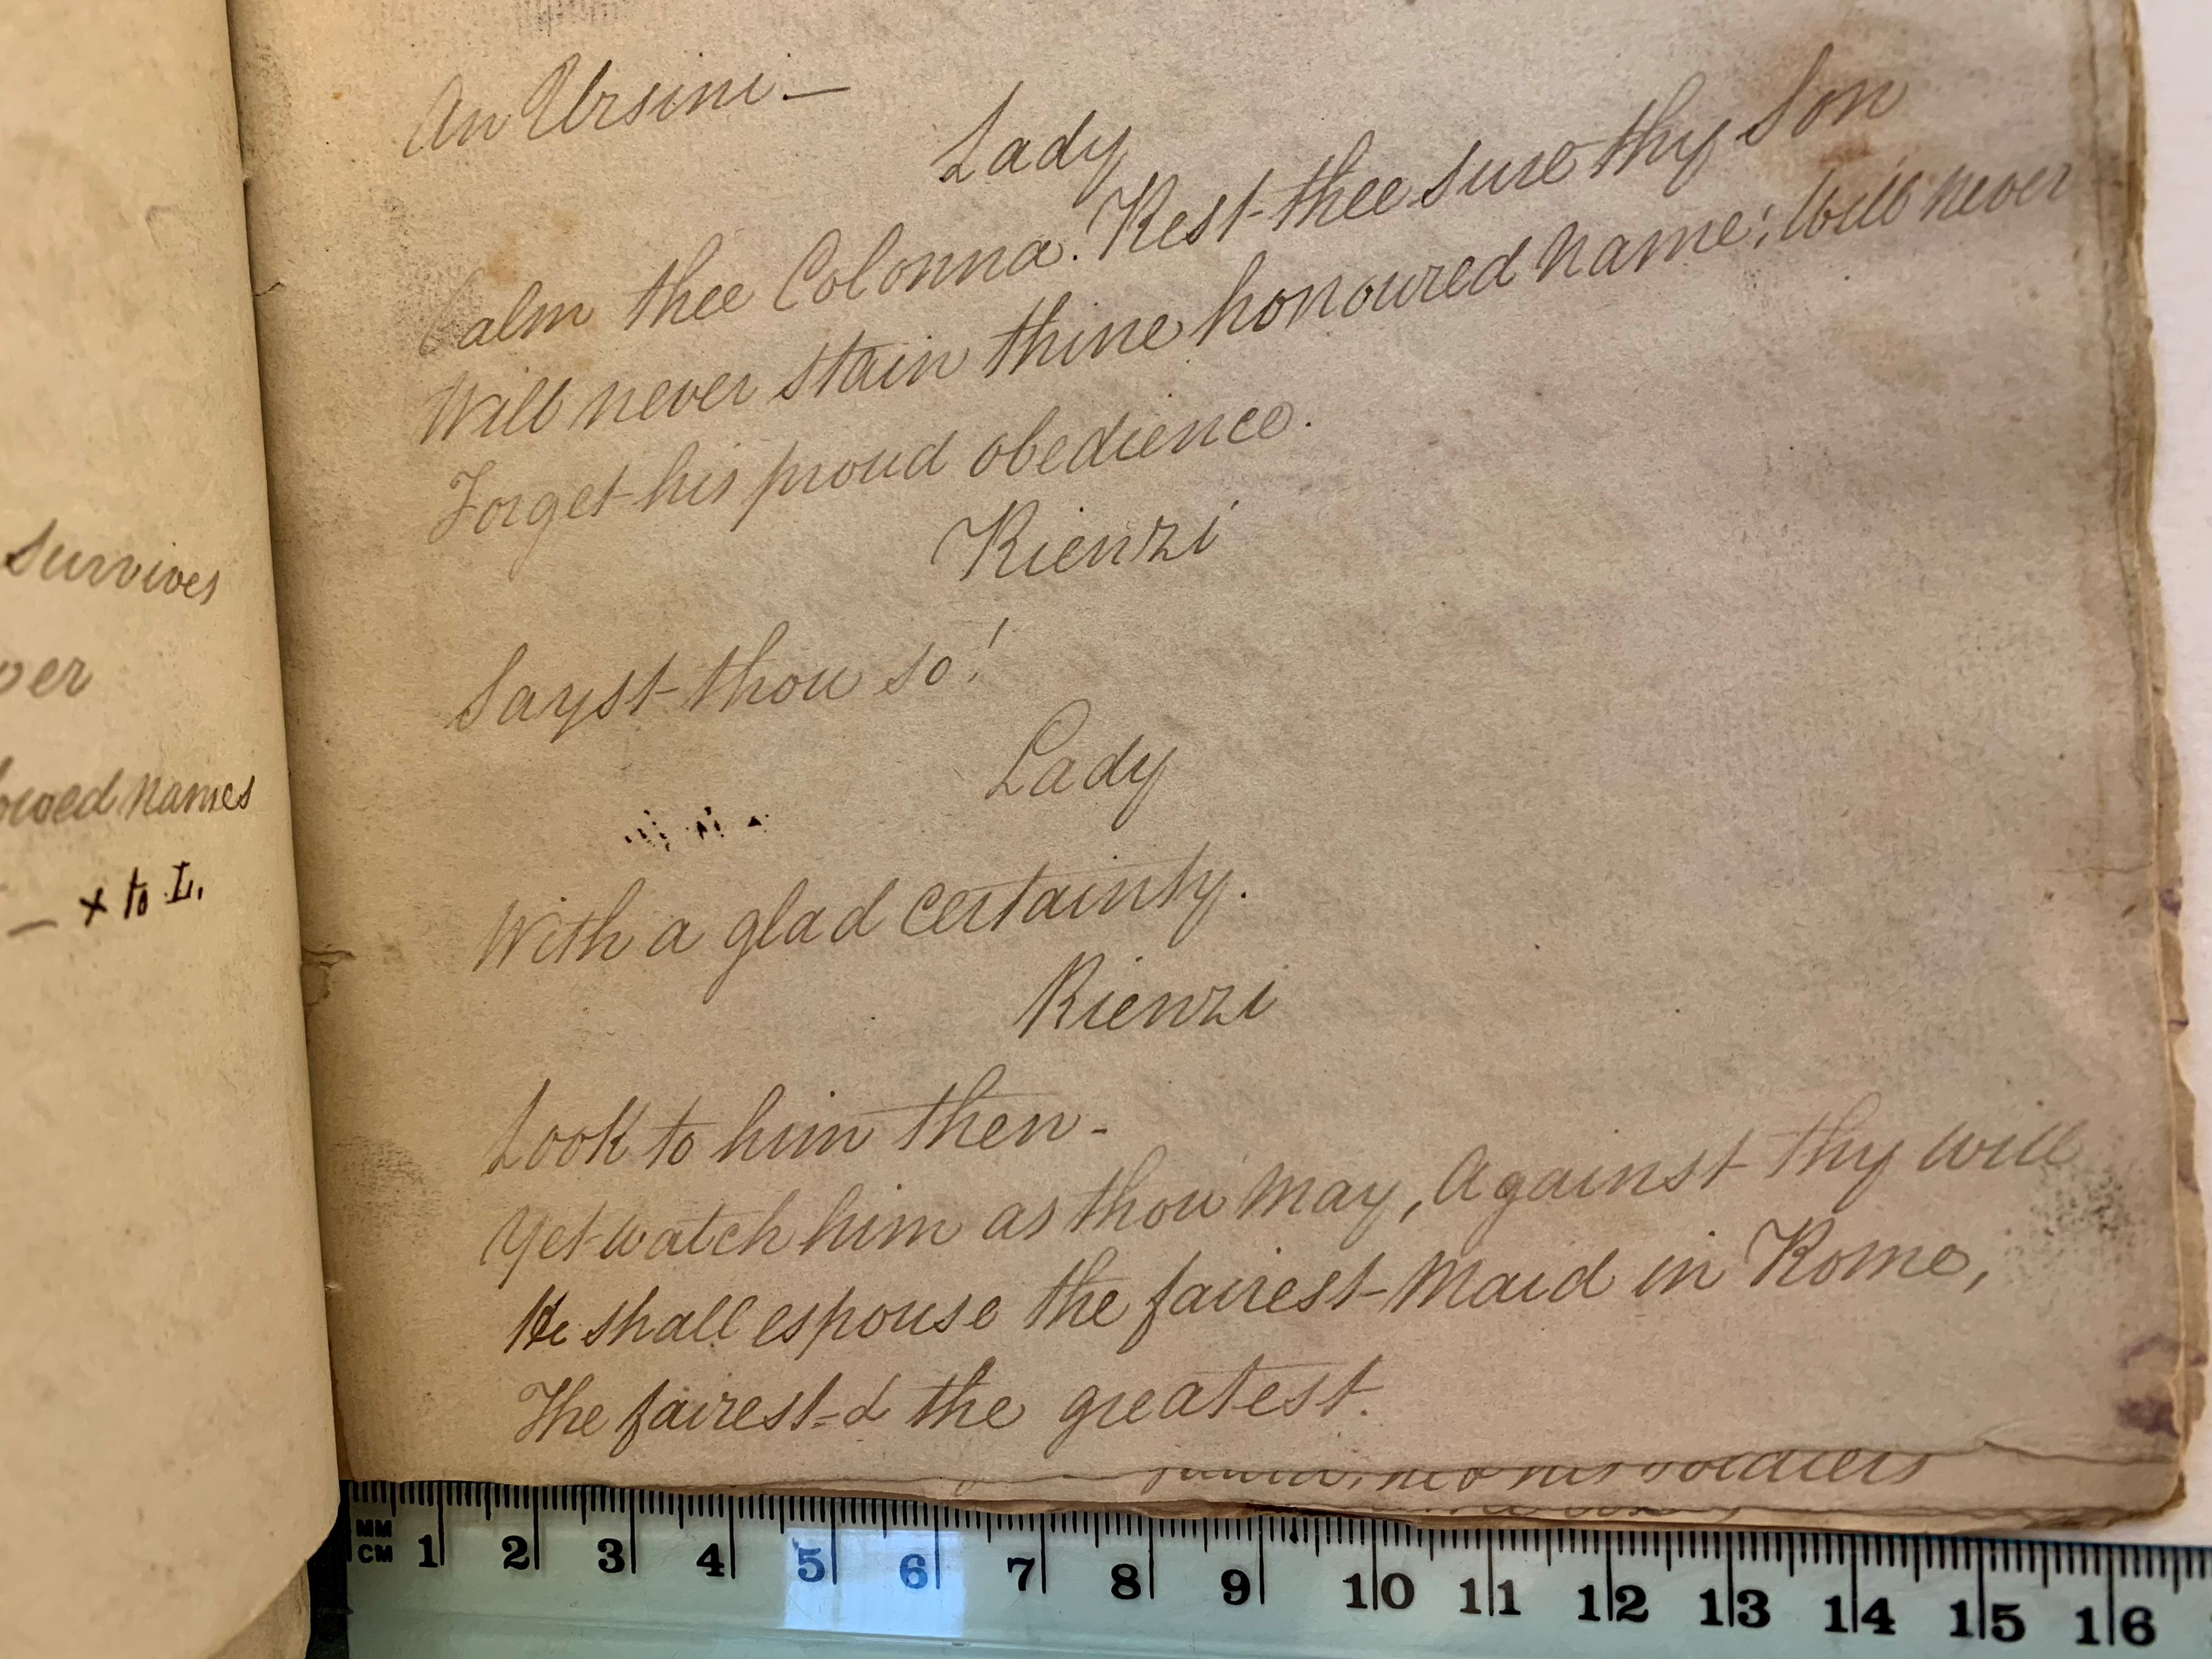 An Ursini —
Lady
Calm thee Colonna. Rest thee sure thy Son
Will never stain thine honoured name; Will never
Forget his proud obedience.
Rienzi
Sayst thou so!
Lady
With a glad certainty.
Rienzi
Look to him then -
Yet watch him as thou may, Against thy will
He shall espouse the fairest Maid in Rome,
The fairest & the greatest.
survives
names
— x to L.
soldiers
MM
CM 1 2 3 4 5 6 7 8 9 10 11 12 13 14 15 16